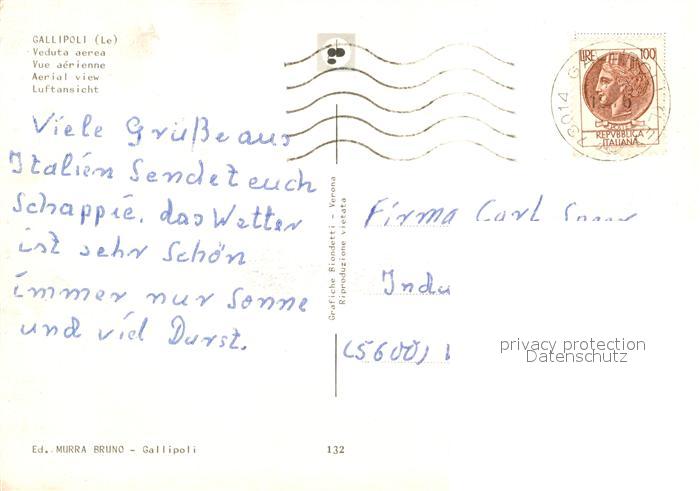 GALLIPOLI (Le)
Veduta aerea
Vue aérienne
Aerial view
Luftansicht
Viele Grüße aus
Italien Sendet euch
Schappie. das Wetter
ist sehr Schön
immer nur Sonne
und viel Durst.
Grafiche Biondetti - Verona
Riproduzione vietata
LIRE 100
REPVBBLICA
ITALIANA
Firma Carl
Indu
(5600) 1
privacy protection
Datenschutz
Ed. MURRA BRUNO - Gallipoli
132